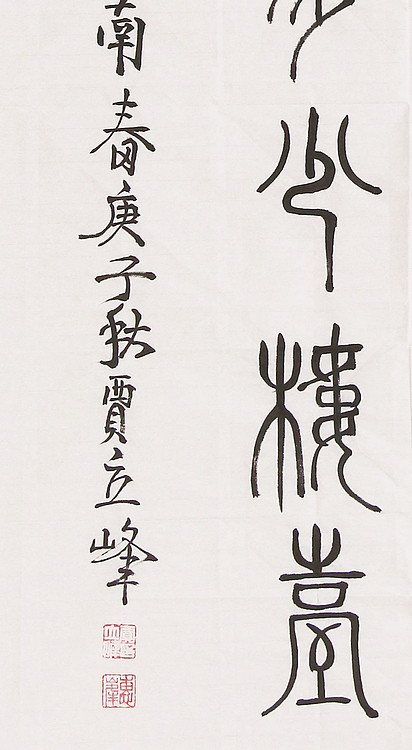 少樓臺
南春庚子秋賈立峰